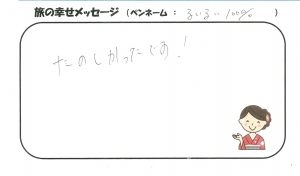 旅の幸せメッセージ（ペンネーム：るいるい100%）
たのしかったです！